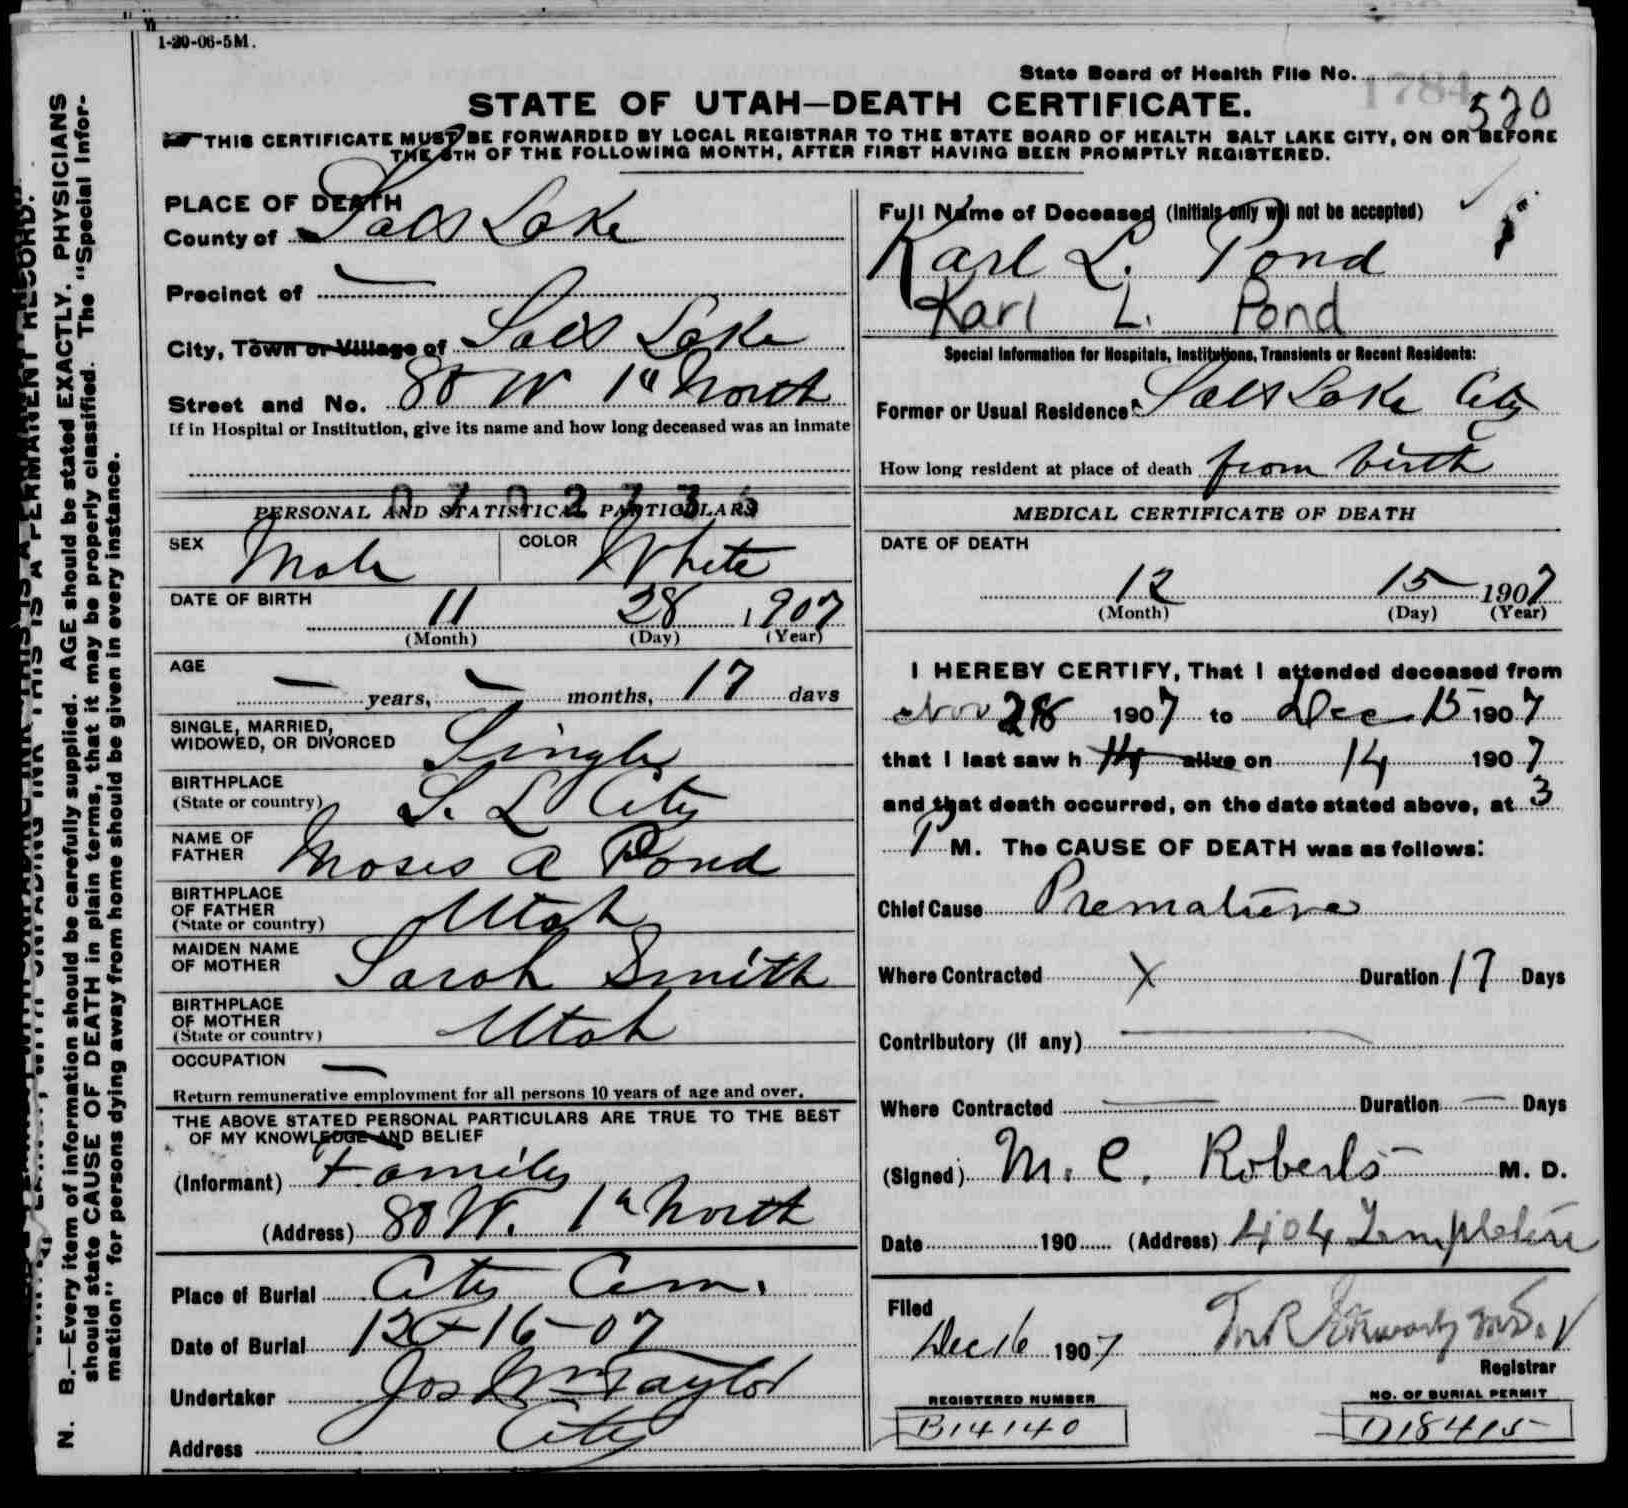 1-20-06-5M.
State Board of Health File No. 1784
520
STATE OF UTAH—DEATH CERTIFICATE.
THIS CERTIFICATE MUST BE FORWARDED BY LOCAL REGISTRAR TO THE STATE BOARD OF HEALTH SALT LAKE CITY, ON OR BEFORE
THE 5TH OF THE FOLLOWING MONTH, AFTER FIRST HAVING BEEN PROMPTLY REGISTERED.
N. B.—Every item of information should be carefully supplied. AGE should be stated EXACTLY. PHYSICIANS
should state CAUSE OF DEATH in plain terms, that it may be properly classified. The "Special Infor-
mation" for persons dying away from home should be given in every instance.
PLACE OF DEATH
County of Salt Lake
Precinct of —
City, Town or Village of Salt Lake
Street and No. 80 W 1st North
If in Hospital or Institution, give its name and how long deceased was an inmate
PERSONAL AND STATISTICAL PARTICULARS
SEX Male COLOR White
DATE OF BIRTH 11 28 1907
(Month) (Day) (Year)
AGE
— years, — months, 17 days
SINGLE, MARRIED,
WIDOWED, OR DIVORCED Single
BIRTHPLACE
(State or country) S. L City
NAME OF
FATHER Moses A Pond
BIRTHPLACE
OF FATHER
(State or country) Utah
MAIDEN NAME
OF MOTHER Sarah Smith
BIRTHPLACE
OF MOTHER
(State or country) Utah
OCCUPATION —
Return remunerative employment for all persons 10 years of age and over.
THE ABOVE STATED PERSONAL PARTICULARS ARE TRUE TO THE BEST
OF MY KNOWLEDGE AND BELIEF
(Informant) Family
(Address) 80 W. 1st North
Place of Burial City Cem.
Date of Burial 12-16-07
Undertaker Jos Wm Taylor
Address City
Full Name of Deceased (Initials only will not be accepted)
Karl L. Pond
Karl L. Pond
Special Information for Hospitals, Institutions, Transients or Recent Residents:
Former or Usual Residence Salt Lake City
How long resident at place of death from birth
MEDICAL CERTIFICATE OF DEATH
DATE OF DEATH
12 15 1907
(Month) (Day) (Year)
I HEREBY CERTIFY, That I attended deceased from
Nov 28 1907 to Dec 15 1907
that I last saw h alive on 14 1907
and that death occurred, on the date stated above, at 3
P M. The CAUSE OF DEATH was as follows:
Chief Cause Premature
Where Contracted X Duration 17 Days
Contributory (If any) —
Where Contracted — Duration — Days
(Signed) M. C. Roberts M. D.
Date 190 (Address) 404 Templeton
Filed
Dec 16 1907
Registrar
REGISTERED NUMBER
B14140
NO. OF BURIAL PERMIT
D18415